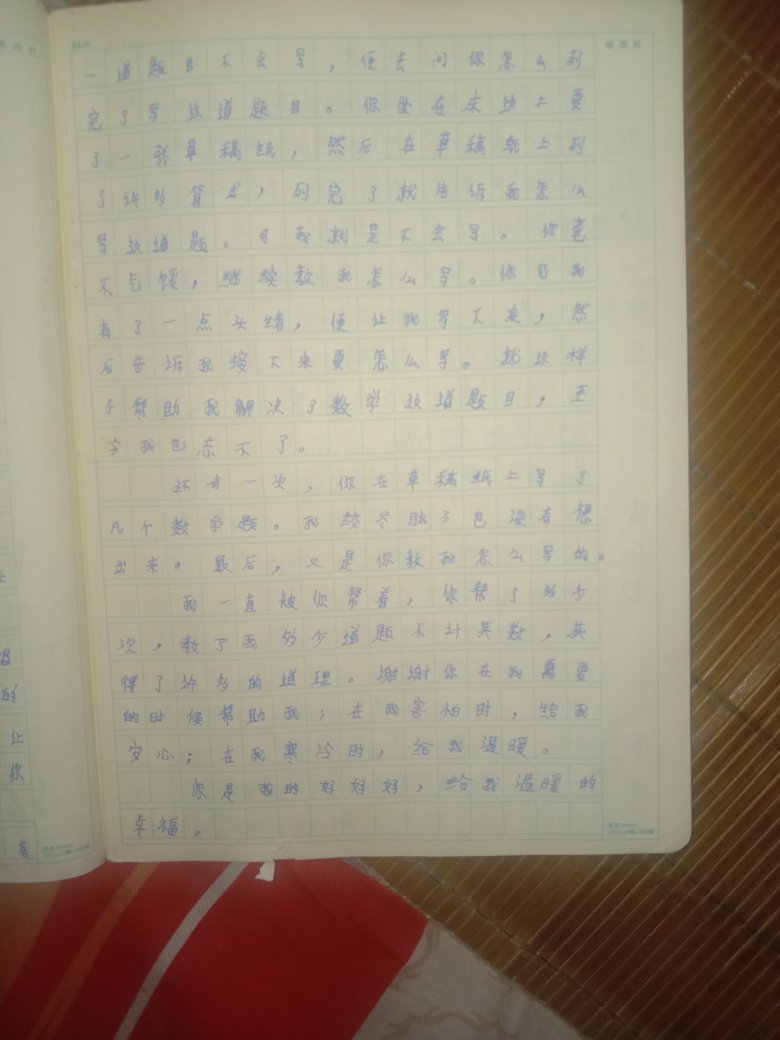 修改栏
DATE
修改栏
一道题目不会写,便去问你怎么列
完了写这道题目。你坐在床边上要
了一张草稿纸,然后在草稿纸上列
了许多算式,列完了就告诉我怎么
写这道题。可我就是不会写。你毫
不气馁,继续教我怎么写。你见我
有了一点头绪,便让我写下来,然
后告诉我接下来要怎么写。就这样
子帮助我解决了数学这道题目,至
今我也忘不了。
还有一次,你在草稿纸上写了
几个数学题。我绞尽脑子也没有想
出来。最后,又是你教我怎么写的。
我一直被你帮着,你帮了多少
次,教了我多少道题不计其数,其
得了许多的道理。谢谢你在我需要
的时候帮助我;在我害怕时,给我
安心;在我寒冷时,给我温暖。
你是我的好妈妈,给我温暖的
幸福。
的
让
你
有